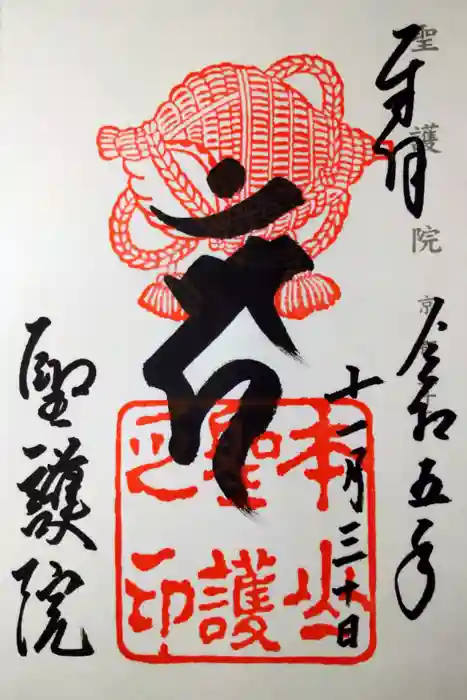 奉拝
聖護院
京
令和五年
十一月三十日
本山
聖護
之印
聖護院